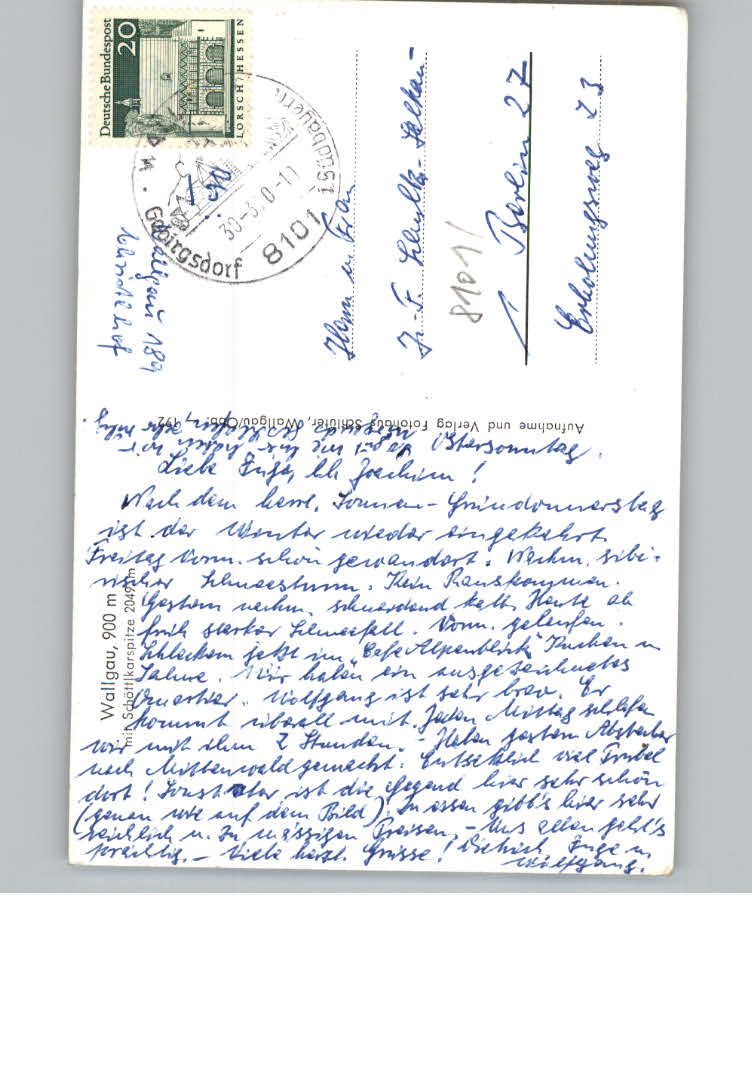 Deutsche Bundespost
20
LORSCH/HESSEN
8101
Gebirgsdorf
30-3.70-11
Abs.:
Wallgau 189
Herrn u. Frau
1 Berlin 27
Erholungsweg 23
8101/
Aufnahme und Verlag Fotohaus Schlüter, Wallgau/Obb.
Wallgau, 900 m
mit Schöttlkarspitze 2049 m
Ostersonntag.
Liebe Inga, lb. Joachim!
Nach dem herrl. Sonnen-Gründonnerstag
ist der Winter wieder eingekehrt.
Freitag Vorm. schön gewandert. Nachm. sibi-
rischer Schneesturm. Kein Rauskommen.
Gestern nachm. schneidend kalt. Heute ab
früh starker Schneefall. Vorm. gelaufen.
Schleckern jetzt im "Café Alpenblick" Kuchen u.
Sahne. Wir haben ein ausgezeichnetes
Quartier. Wolfgang ist sehr brav. Er
kommt überall mit. Jeden Mittag schlafen
wir mit ihm 2 Stunden. - Haben gestern Abstecher
nach Mittenwald gemacht. Entsetzlich viel Trubel
dort! Sonst aber ist die Gegend hier sehr schön
(genau wie auf dem Bild). Zu essen gibt's hier sehr
reichlich u. zu mässigen Preisen. - Uns allen geht's
prächtig. - Viele herzl. Grüsse! Dietrich, Inge u.
Wolfgang.